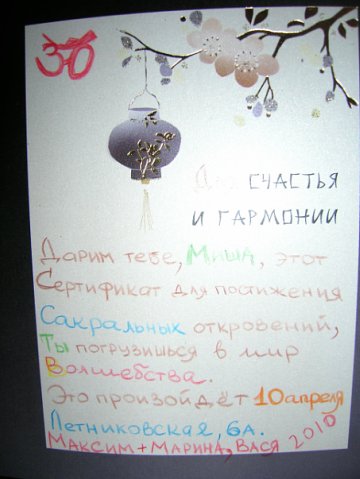 30
Для СЧАСТЬЯ
И ГАРМОНИИ
Дарим тебе, Миша, этот
Сертификат для постижения
Сакральных откровений,
Ты погрузишься в мир
Волшебства.
Это произойдёт 10 апреля
Летниковская, 6А.
Максим + Марина, Вася 2010